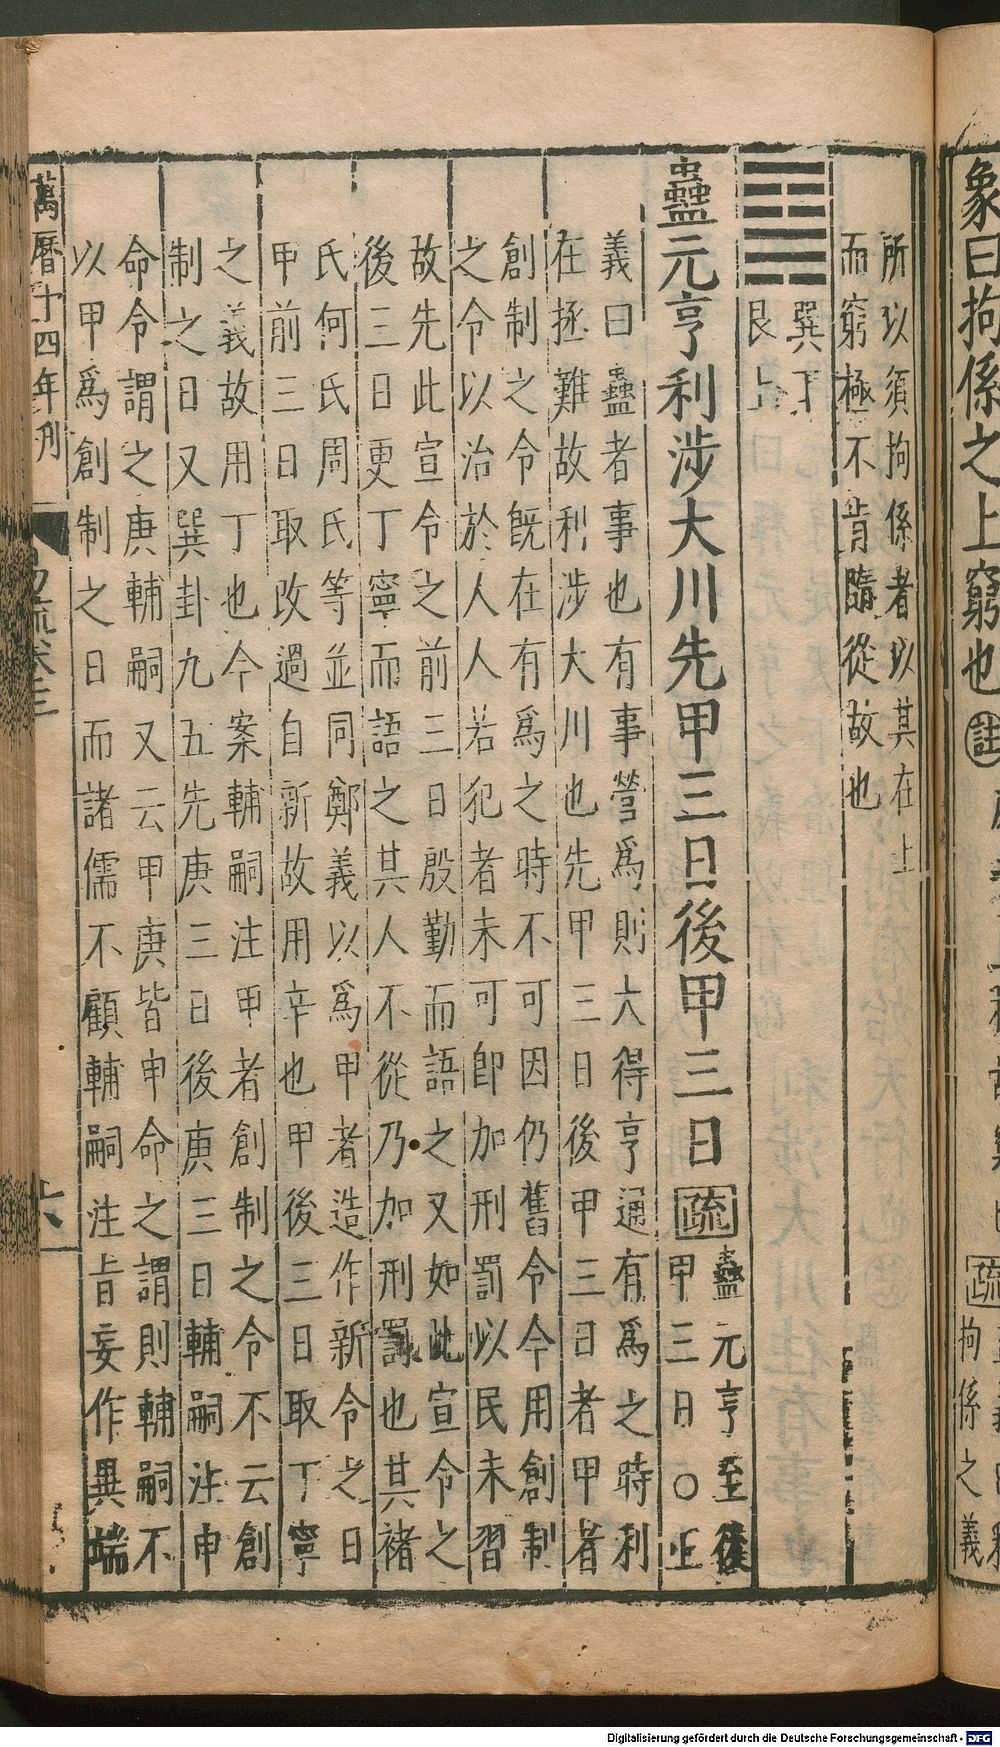 象曰拘係之上窮也
註
疏
拘係之義
所以須拘係者以其在上
而窮極不肯隨從故也
巽下
艮上
蠱元亨利涉大川先甲三日後甲三日
疏
蠱元亨至後
甲三日〇正
義曰蠱者事也有事營爲則大得亨通有爲之時利
在拯難故利涉大川也先甲三日後甲三日者甲者
創制之令既在有爲之時不可因仍舊令今用創制
之令以治於人人若犯者未可即加刑罰以民未習
故先此宣令之前三日殷勤而語之又如此宣令之
後三日更丁寧而語之其人不從乃加刑罰也其褚
氏何氏周氏等並同鄭義以爲甲者造作新令之日
甲前三日取改過自新故用辛也甲後三日取丁寧
之義故用丁也今案輔嗣注甲者創制之令不云創
制之日又巽卦九五先庚三日後庚三日輔嗣注申
命令謂之庚輔嗣又云甲庚皆申命之謂則輔嗣不
以甲爲創制之日而諸儒不顧輔嗣注旨妄作異端
萬曆十四年刋
易疏卷三
六
Digitalisierung gefördert durch die Deutsche Forschungsgemeinschaft - DFG